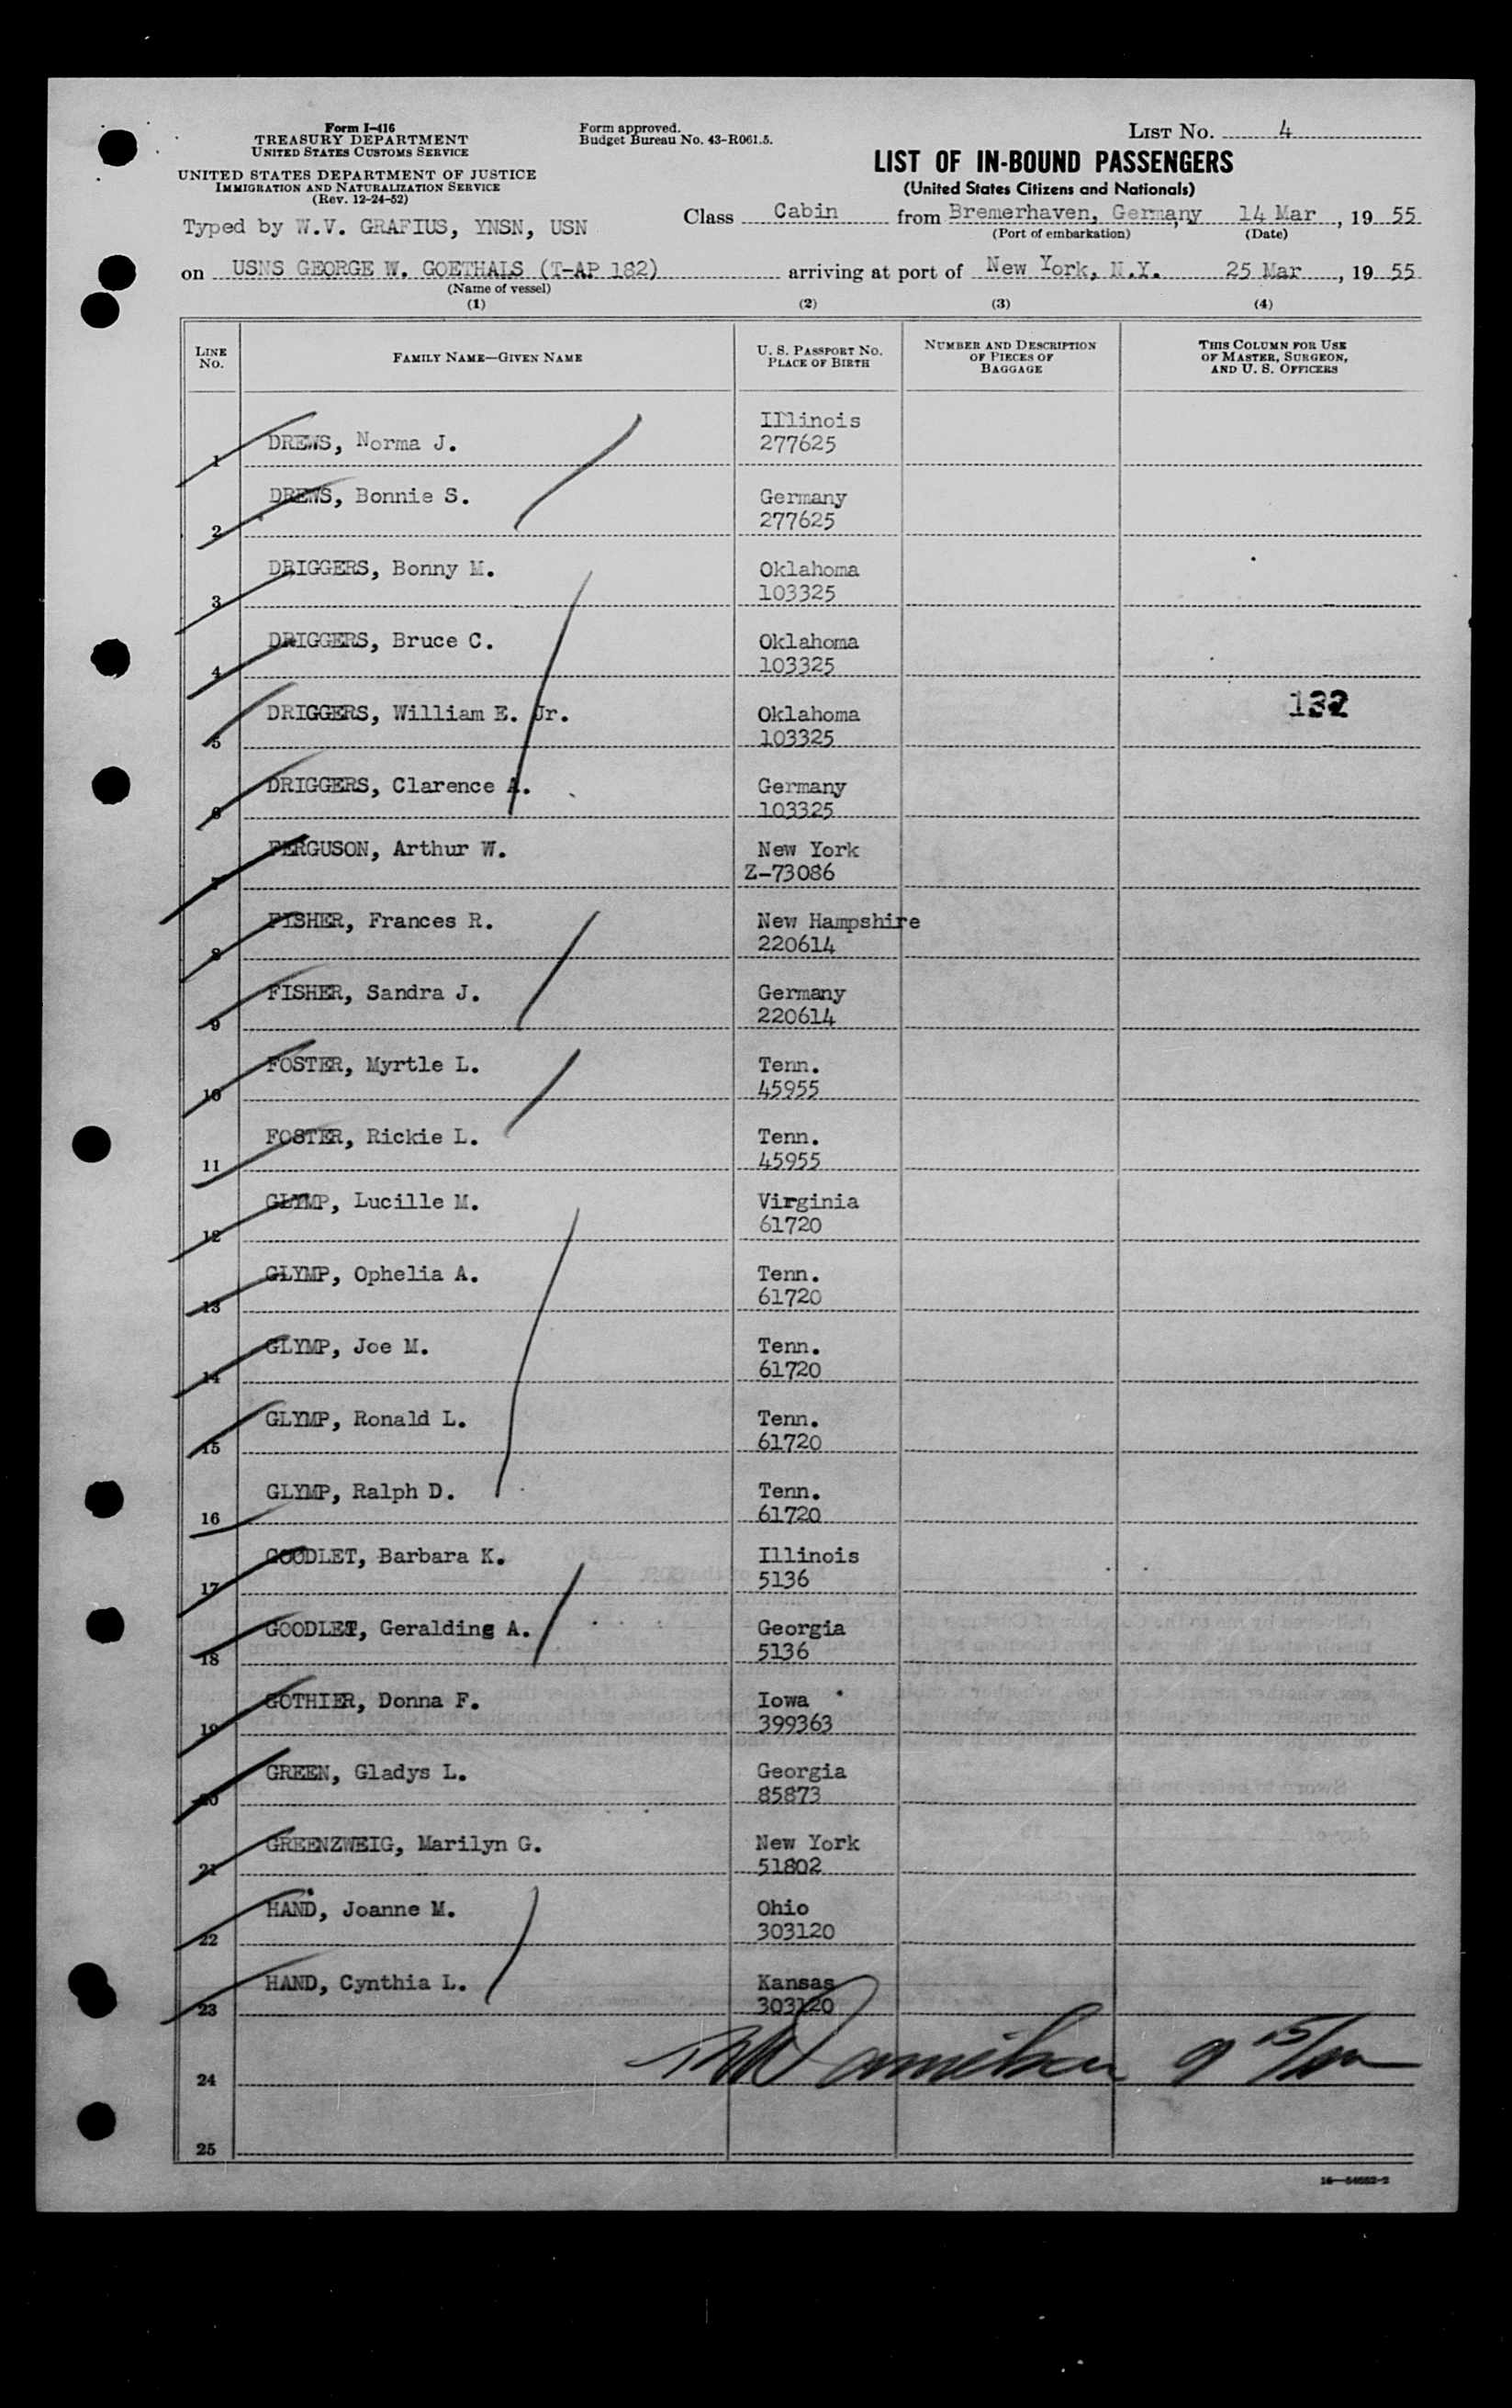 Form I-416
TREASURY DEPARTMENT
UNITED STATES CUSTOMS SERVICE
UNITED STATES DEPARTMENT OF JUSTICE
IMMIGRATION AND NATURALIZATION SERVICE
(Rev. 12-24-52)
Form approved.
Budget Bureau No. 43-R061.5.
LIST NO. 4
LIST OF IN-BOUND PASSENGERS
(United States Citizens and Nationals)
Typed by W.V. GRAFIUS, YNSN, USN
Class Cabin from Bremerhaven, Germany 14 Mar, 19 55
(Port of embarkation) (Date)
on USNS GEORGE W. GOETHALS (T-AP 182) arriving at port of New York, N.Y. 25 Mar, 19 55
(Name of vessel)
(1) (2) (3) (4)
LINE NO. FAMILY NAME—GIVEN NAME U. S. PASSPORT NO. PLACE OF BIRTH NUMBER AND DESCRIPTION OF PIECES OF BAGGAGE THIS COLUMN FOR USE OF MASTER, SURGEON, AND U. S. OFFICERS
Illinois
1 DREWS, Norma J. 277625
2 DREWS, Bonnie S. Germany
277625
3 DRIGGERS, Bonny M. Oklahoma
103325
4 DRIGGERS, Bruce C. Oklahoma
103325
132
5 DRIGGERS, William E. Jr. Oklahoma
103325
6 DRIGGERS, Clarence A. Germany
103325
7 FERGUSON, Arthur W. New York
Z-73086
8 FISHER, Frances R. New Hampshire
220614
9 FISHER, Sandra J. Germany
220614
10 FOSTER, Myrtle L. Tenn.
45955
11 FOSTER, Rickie L. Tenn.
45955
12 GLYMP, Lucille M. Virginia
61720
13 GLYMP, Ophelia A. Tenn.
61720
14 GLYMP, Joe M. Tenn.
61720
15 GLYMP, Ronald L. Tenn.
61720
16 GLYMP, Ralph D. Tenn.
61720
17 GOODLET, Barbara K. Illinois
5136
18 GOODLET, Geralding A. Georgia
5136
19 GOTHIER, Donna F. Iowa
399363
20 GREEN, Gladys L. Georgia
85873
21 GREENZWEIG, Marilyn G. New York
51802
22 HAND, Joanne M. Ohio
303120
23 HAND, Cynthia L. Kansas
303120
24
25